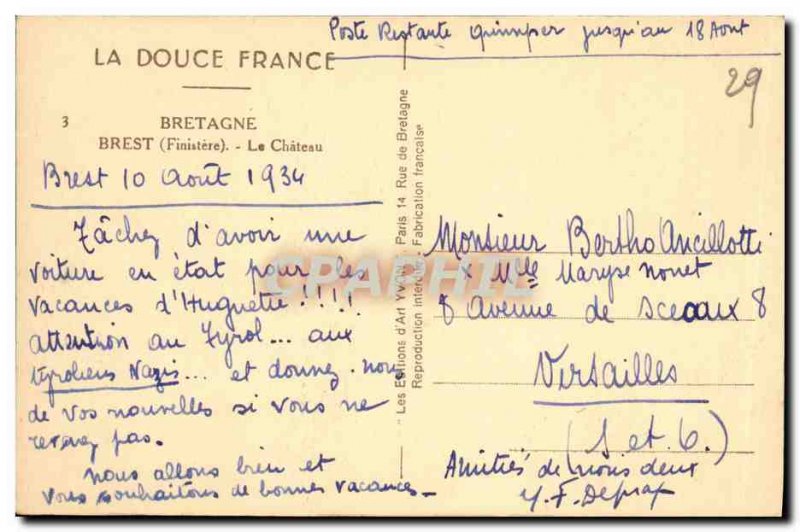 Poste Restante Quimper jusqu'au 18 Aout
LA DOUCE FRANCE
29
3
BRETAGNE
BREST (Finistère). - Le Château
Brest 10 Août 1934
Tâchez d'avoir une
voiture en état pour les
vacances d'Huguette!!!!
attention au Tyrol... aux
tyroliens Nazis... et donnez-nous
de vos nouvelles si vous ne
revenez pas.
nous allons bien et
vous souhaitons de bonnes vacances-
Les Editions d'Art YVON, Paris 14 Rue de Bretagne
Reproduction interdite. Fabrication française
Monsieur Bertho Ancillotti
x Mlle Maryse Nonet
8 Avenue de Sceaux 8
Versailles
(S et O.)
Amitiés de nous deux
Y. F.
CPARPHIL